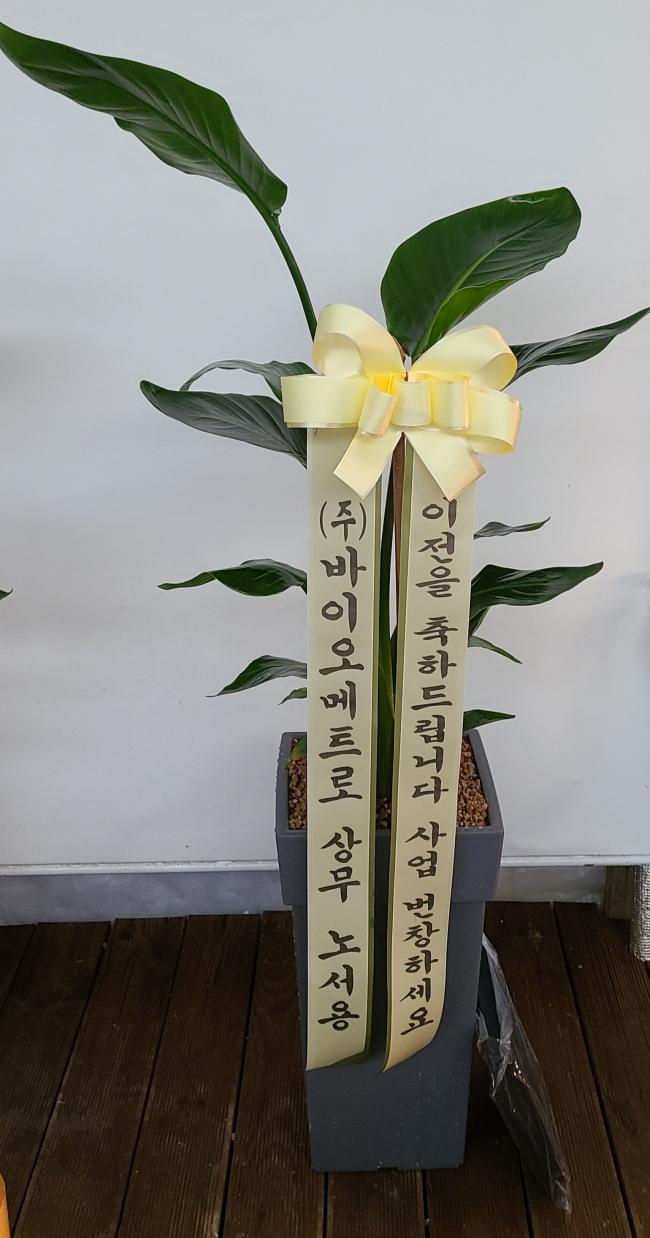 (주)바이오메트로 상무 노서용
이전을 축하드립니다 사업 번창하세요